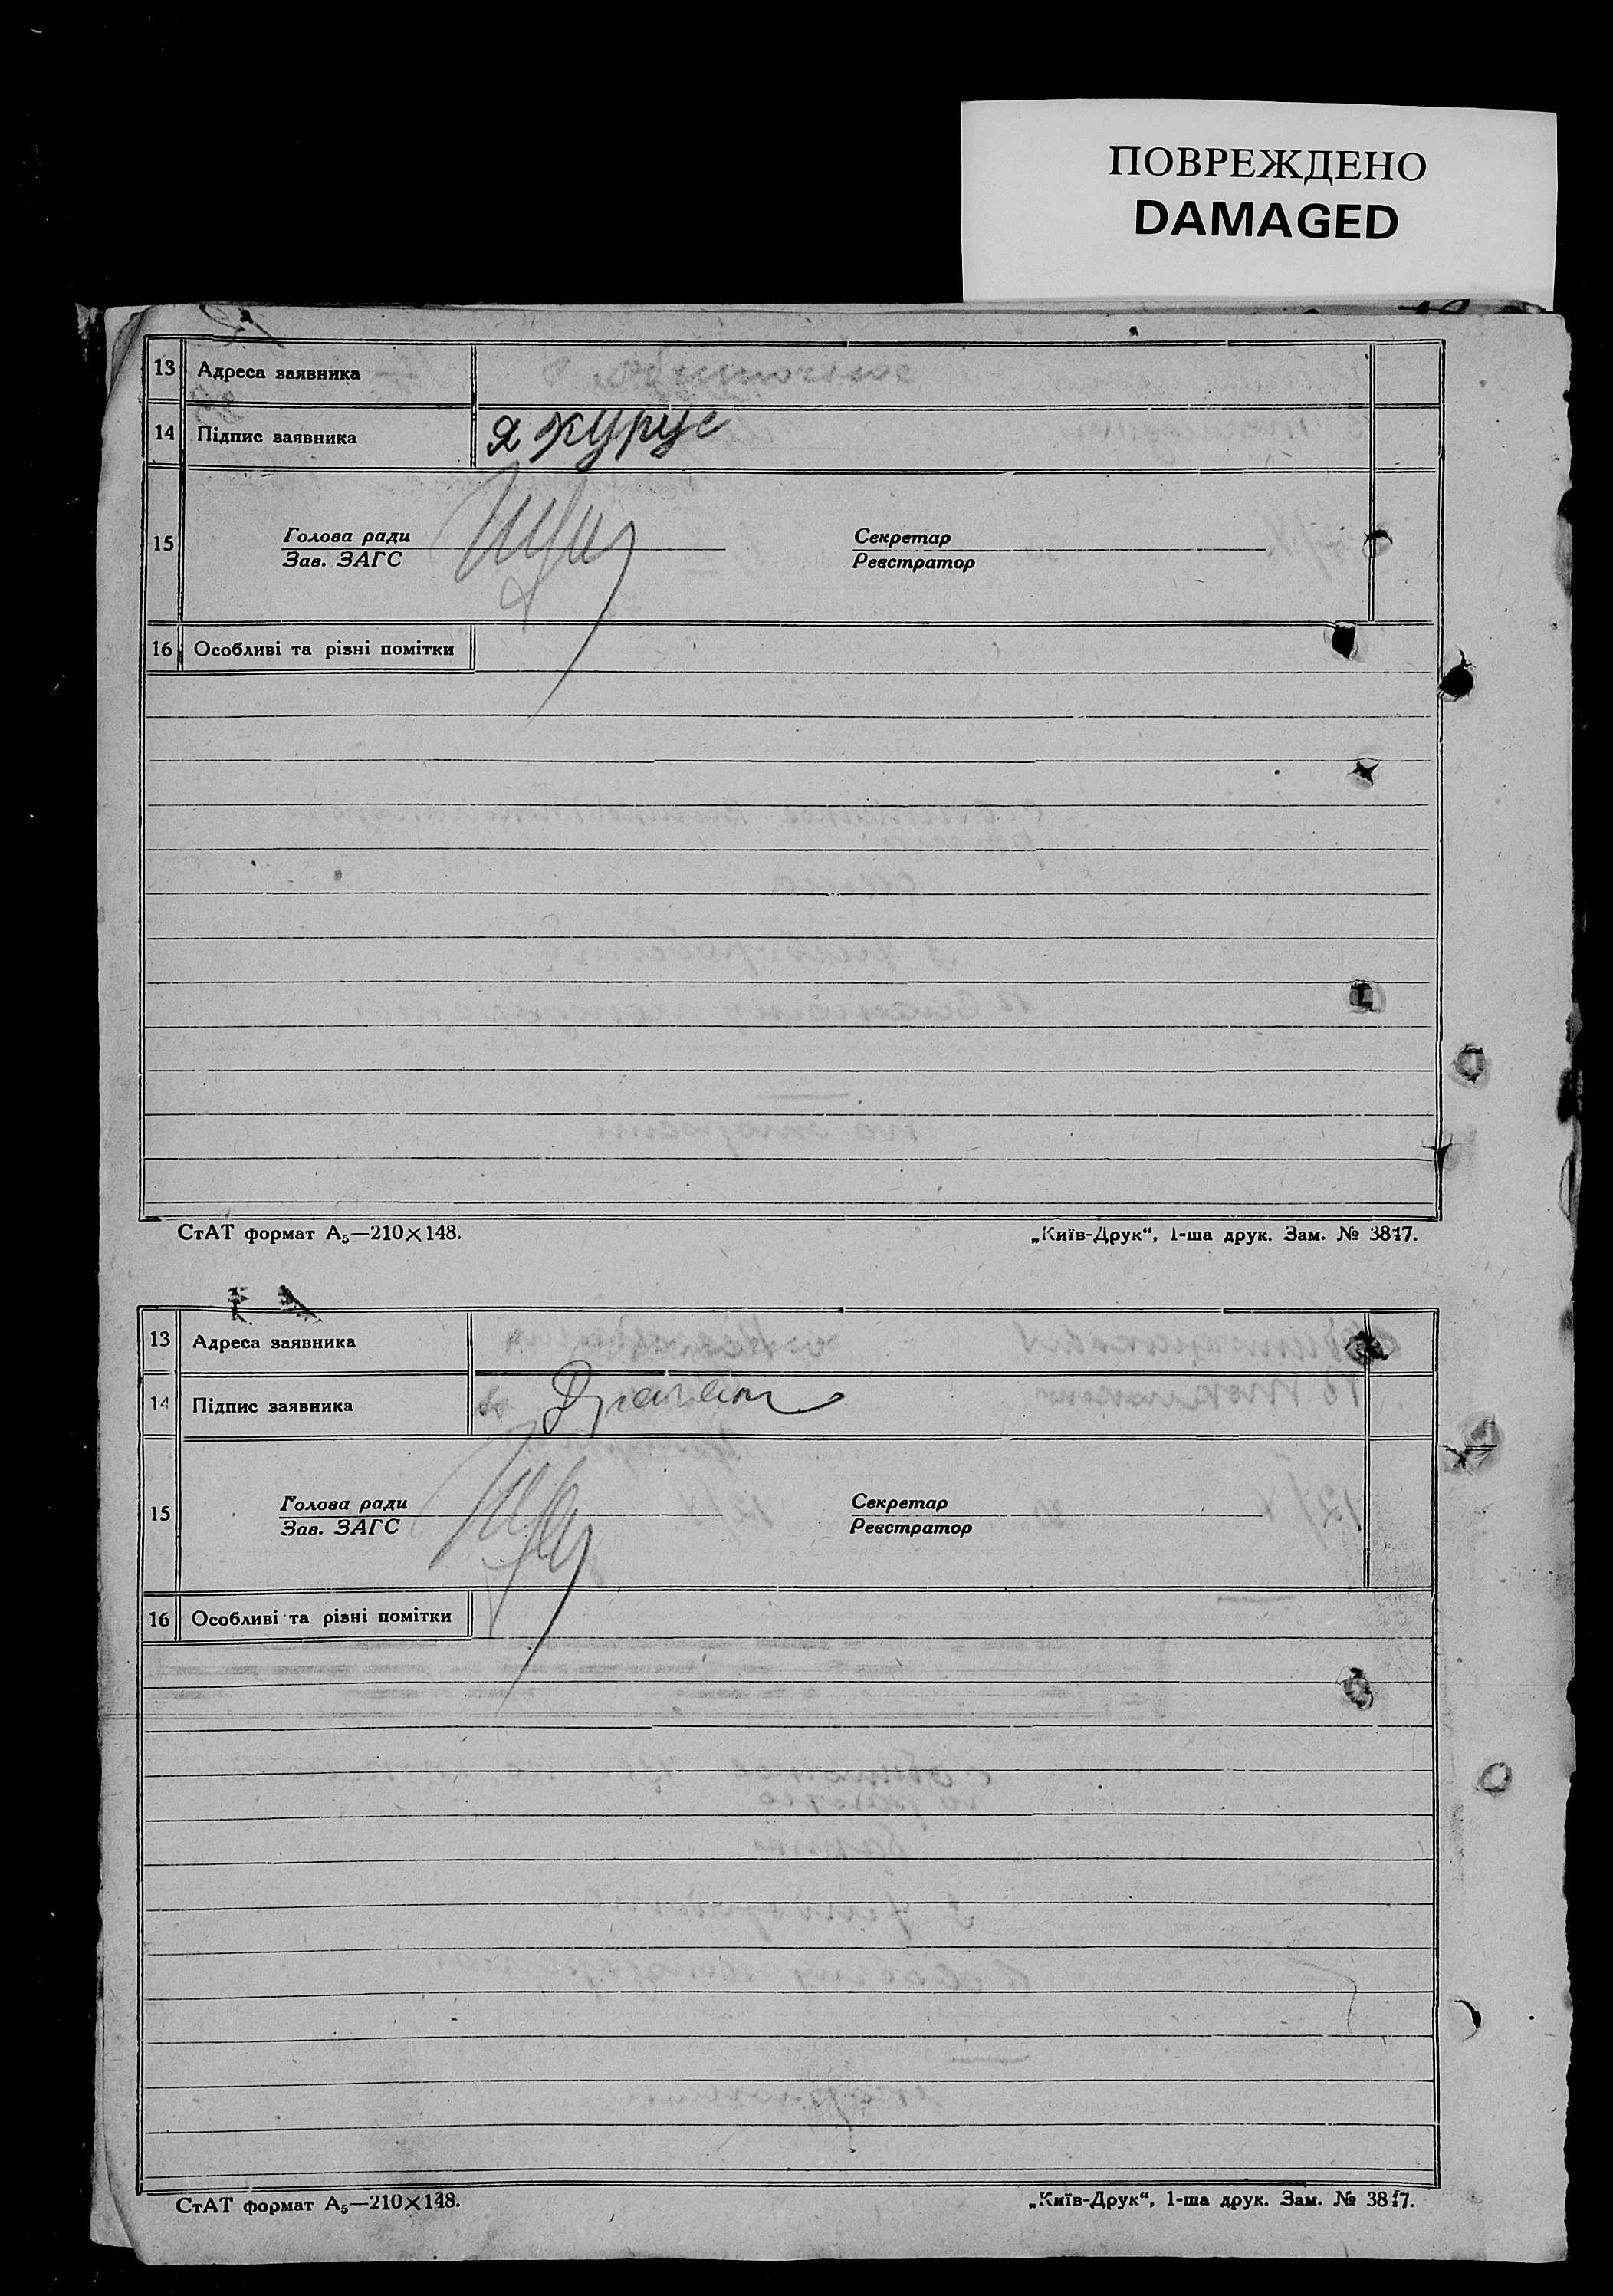 ПОВРЕЖДЕНО
DAMAGED
13 Адреса заявника
14 Підпис заявника я журус
15 Голова ради Секретар
Зав. ЗАГС Реєстратор
16 Особливі та різні помітки
СтАТ формат А₅—210×148. „Київ-Друк“, 1-ша друк. Зам. № 3847.
13 Адреса заявника
14 Підпис заявника
15 Голова ради Секретар
Зав. ЗАГС Реєстратор
16 Особливі та різні помітки
СтАТ формат А₅—210×148. „Київ-Друк“, 1-ша друк. Зам. № 3847.